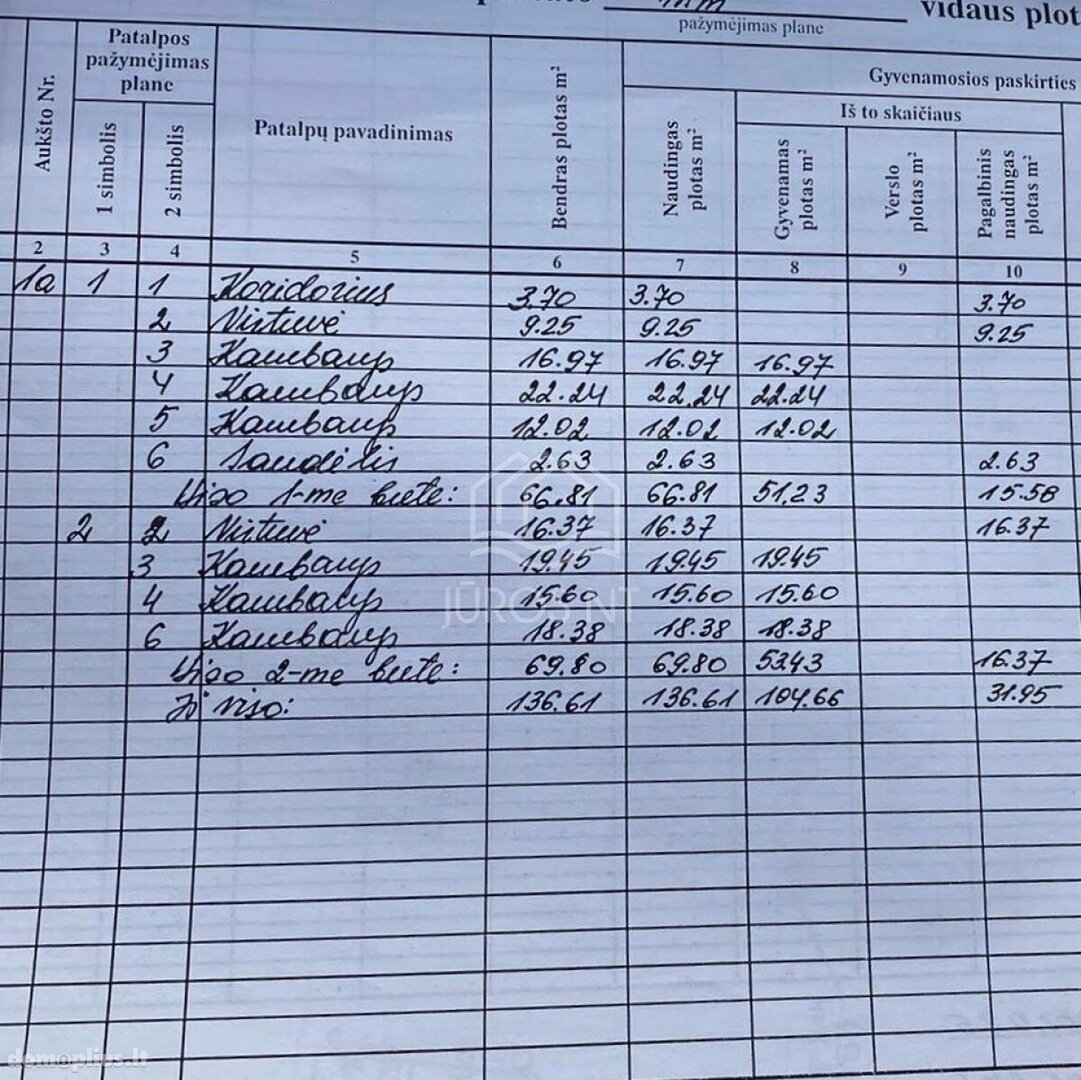 vidaus plot
pažymėjimas plane
Aukšto Nr.
Patalpos pažymėjimas plane
1 simbolis
2 simbolis
Patalpų pavadinimas
Bendras plotas m²
Gyvenamosios paskirties
Naudingas plotas m²
Iš to skaičiaus
Gyvenamas plotas m²
Verslo plotas m²
Pagalbinis naudingas plotas m²
2 3 4 5 6 7 8 9 10
1a 1 1 Koridorius 3.70 3.70 3.70
2 Virtuvė 9.25 9.25 9.25
3 Kambarys 16.97 16.97 16.97
4 Kambarys 22.24 22.24 22.24
5 Kambarys 12.02 12.02 12.02
6 Sandėlis 2.63 2.63 2.63
Viso 1-me bute: 66.81 66.81 51.23 15.58
2 2 Virtuvė 16.37 16.37 16.37
3 Kambarys 19.45 19.45 19.45
4 Kambarys 15.60 15.60 15.60
6 Kambarys 18.38 18.38 18.38
Viso 2-me bute: 69.80 69.80 53.43 16.37
Iš viso: 136.61 136.61 104.66 31.95
JŪROS NT
domoplius.lt